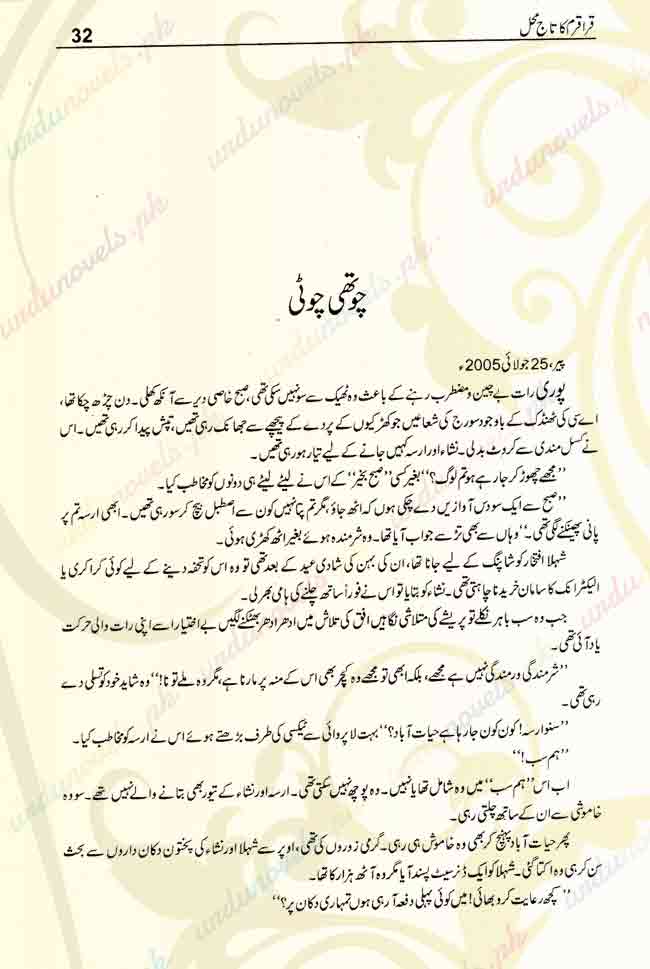 قراقرم کا تاج محل
32
چوتھی چوٹی
پیر، 25 جولائی 2005ء
پوری رات بے چین و مضطرب رہنے کے باعث وہ ٹھیک سے سو نہیں سکی تھی، صبح خاصی دیر سے آنکھ کھلی۔ دن چڑھ چکا تھا،
اے سی کی ٹھنڈک کے باوجود سورج کی شعاعیں جو کھڑکیوں کے پردے کے پیچھے سے جھانک رہی تھیں، تپش پیدا کر رہی تھیں۔ اس
نے کسل مندی سے کروٹ بدلی۔ نشاء اور ارسہ کہیں جانے کے لیے تیار ہو رہی تھیں۔
”مجھے چھوڑ کر جا رہے ہو تم لوگ؟“ بغیر کسی ”صبح بخیر“ کے اس نے لیٹے لیٹے ہی دونوں کو مخاطب کیا۔
”صبح سے ایک سو دس آوازیں دے چکی ہوں کہ اٹھ جاؤ، مگر تم پتا نہیں کون سے اصطبل بیچ کر سو رہی تھیں۔ ابھی ارسہ تم پر
پانی پھینکنے لگی تھی۔“ وہاں سے بھی تڑ سے جواب آیا تھا۔ وہ شرمندہ ہوئے بغیر اٹھ کھڑی ہوئی۔
شہلا افتخار کو شاپنگ کے لیے جانا تھا، ان کی بہن کی شادی عید کے بعد تھی تو وہ اس کو تحفہ دینے کے لیے کوئی کراکری یا
الیکٹرانک کا سامان خریدنا چاہتی تھی۔ نشاء کو بتایا تو اس نے فوراً ساتھ چلنے کی ہامی بھر لی۔
جب وہ سب باہر نکلے تو پریشے کی متلاشی نگاہیں افق کی تلاش میں ادھر ادھر بھٹکنے لگیں بے اختیار اسے اپنی رات والی حرکت
یاد آئی تھی۔
”شرمندگی ورمندگی نہیں ہے مجھے، بلکہ ابھی تو مجھے وہ کیچر بھی اس کے منہ پر مارنا ہے، مگر وہ ملے تو نا!“ وہ شاید خود کو تسلی دے
رہی تھی۔
”سنو ارسہ! کون کون جا رہا ہے حیات آباد؟“ بہت لا پروائی سے ٹیکسی کی طرف بڑھتے ہوئے اس نے ارسہ کو مخاطب کیا۔
”ہم سب!“
اب اس ”ہم سب“ میں وہ شامل تھا یا نہیں۔ وہ پوچھ نہیں سکتی تھی۔ ارسہ اور نشاء کے تیور بھی بتانے والے نہیں تھے۔ سو وہ
خاموشی سے ان کے ساتھ چلتی رہی۔
پھر حیات آباد پہنچ کر بھی وہ خاموش ہی رہی۔ گرمی زوروں کی تھی، اوپر سے شہلا اور نشاء کی پختون دکان داروں سے بحث
سن کر ہی وہ اکتا گئی۔ شہلا کو ایک ڈنر سیٹ پسند آیا مگر وہ آٹھ ہزار کا تھا۔
”کچھ رعایت کرو بھائی! میں کوئی پہلی دفعہ آ رہی ہوں تمہاری دکان پر؟“
urdunovels.pk